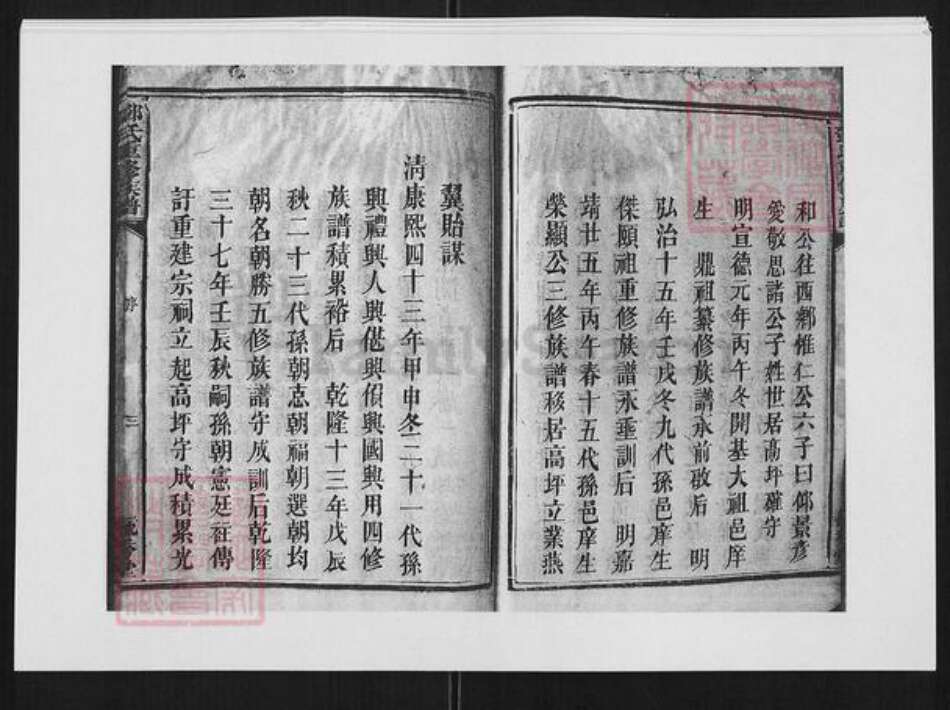 和公往西鄉惟仁公六子曰鄭景彥
愛敬思諸公子姓世居高坪確守
明宣德元年丙午冬開基大祖邑庠
生　鼎祖纂修族譜承前啟后　明
弘治十五年壬戌冬九代孫邑庠生
傑願祖重修族譜永垂訓后　明嘉
靖廿五年丙午春十五代孫邑庠生
榮顯公三修族譜移居高坪立業燕
翼貽謀
清康熙四十三年甲申冬二十一代孫
興禮興人興偡興傾興國興用四修
族譜積累裕后　乾隆十三年戊辰
秋二十三代孫朝惪朝福朝選朝均
朝名朝勝五修族譜守成訓后乾隆
三十七年壬辰秋嗣孫朝憲廷在傳
訏重建宗祠立起高坪守成積累光
氏重修族譜
序
三